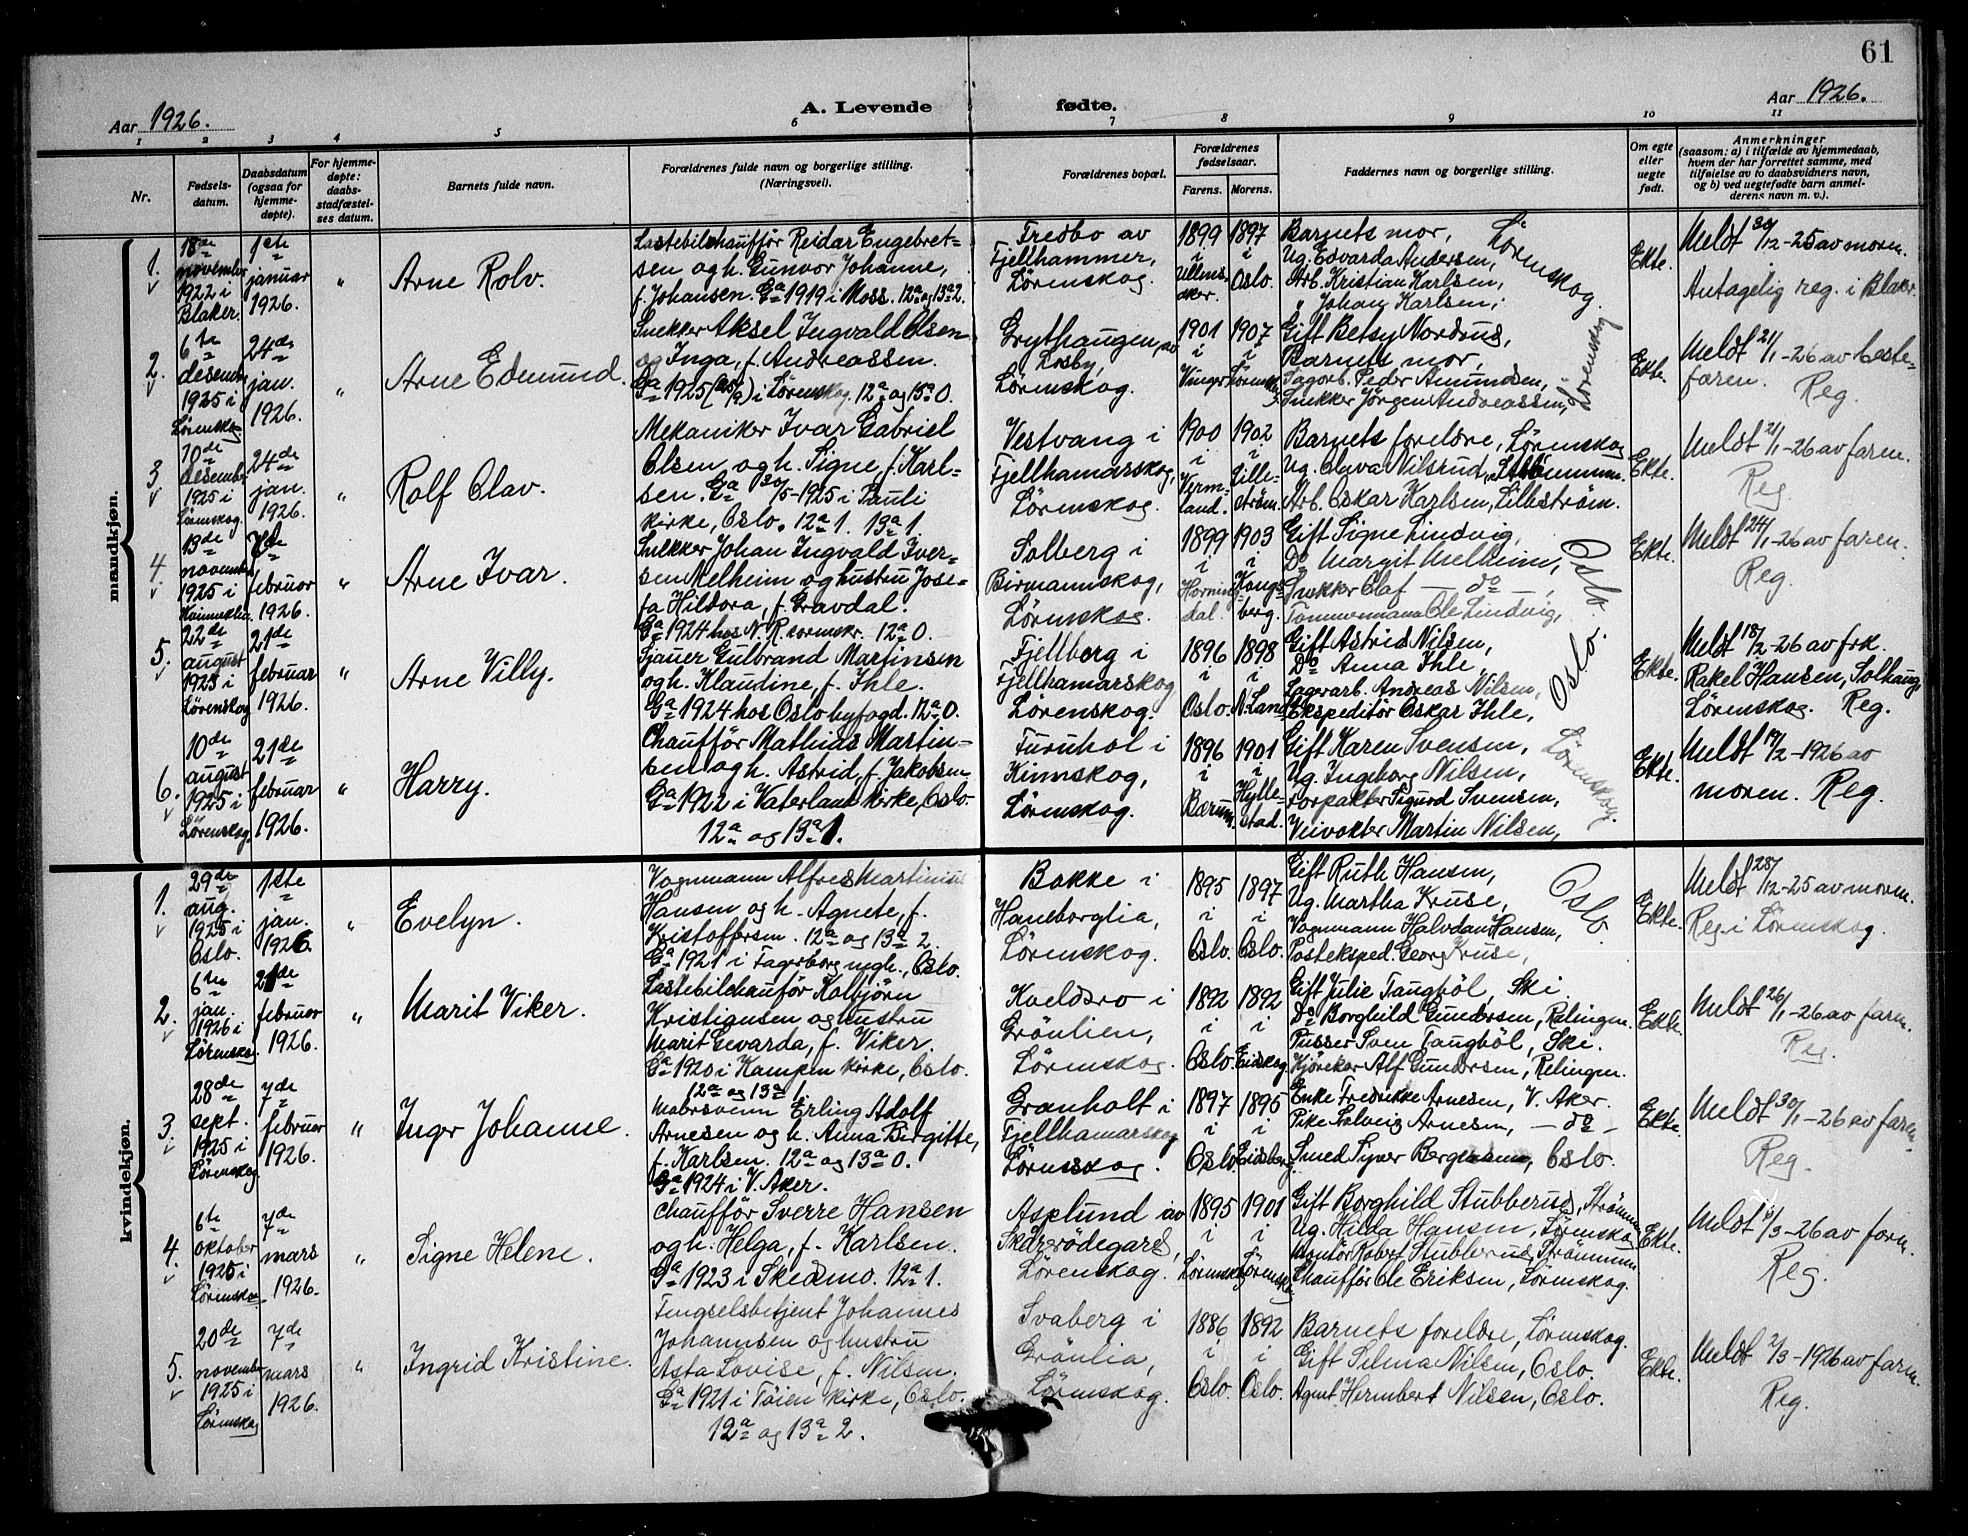 61
Aar 1926.
A. Levende fødte.
Aar 1926.
1 2 3 4 5 6 7 8 9 10 11
Nr.
Fødsels-
datum.
Daabsdatum
(ogsaa for
hjemme-
døpte).
For hjemme-
døpte:
daabs-
stadfæstel-
ses datum.
Barnets fulde navn.
Forældrenes fulde navn og borgerlige stilling.
(Næringsvei).
Forældrenes bopæl.
Forældrenes
fødselsaar.
Farens. Morens.
Faddernes navn og borgerlige stilling.
Om egte
eller
uegte
født.
Anmerkninger
(saasom: a) i tilfælde av hjemmedaab,
hvem der har forrettet samme, med
tilføielse av to daabsvidners navn,
og b) ved uegtefødte barn anmel-
derens navn m. v.).
mandkjøn.
1.
18de
november
1922 i
Blaker.
1ste
januar
1926.
"
Arne Rolv.
Lastebilchauffør Reidar Engebret-
sen og h. Gunvor Johanne,
f. Johansen. Ga 1919 i Moss. 12a og 13a 2.
Tredbo av
Fjellhammer,
Lörenskog.
1899
i
Ullens-
aker.
1897
i
Oslo.
Barnets mor,
Ug. Edvarda Andersen,
Arb. Kristian Karlsen,
" Johan Karlsen,
Lörenskog.
Ekte.
Meldt 30/12-25 av moren.
Antagelig reg. i Blaker.
2.
6te
desember
1925 i
Lörenskog
24de
jan.
1926.
"
Arne Edmund.
Snekker Aksel Ingvald Olsen
og Inga, f. Andreassen.
Ga 1925 (25/9) i Lörenskog. 12a og 13a 0.
Grythaugen, av
Losby,
Lörenskog.
1901
i
Vinger
1907
i
Lörenskog
Gift Betsy Nordrud,
Barnets mor,
Sagarb. Peder Amundsen,
Snekker Jörgen Andreassen,
Lörenskog
Ekte.
Meldt 21/1-26 av beste-
faren.
Reg.
3.
10de
desember
1925 i
Lörenskog.
24de
jan.
1926.
"
Rolf Olav.
Mekaniker Ivar Gabriel
Olsen og h. Signe, f. Karl-
sen. Ga 30/5-1925 i Pauli
kirke, Oslo. 12a 1. 13a 1.
Vestvang i
Fjellhamarskog,
Lörenskog.
1900
i
Verm-
land.
1902
i
Lille-
ström.
Barnets forelre, Lörenskog
Ug. Olava Nilsrud, Strömmen.
Arb. Oskar Karlsen, Lilleström.
Ekte.
Meldt 21/1-26 av faren.
Reg.
4.
13de
november
1925 i
7de
februar
1926.
"
Arne Ivar.
Snekker Johan Ingvald Iver-
sen Melheim og hustru Jose-
fa Hildora, f. Gravdal.
Ga 1924 hos N. R. sorenskr. 12a 0.
Solberg i
Birmannskog,
Lörenskog.
1899
i
Hornin-
dal.
1903
i
Kongs-
berg.
Gift Signe Lindvig,
Do Margit Melheim,
Snekker Olaf — do —,
Tömmermann Ole Lindvig,
Oslo.
Ekte.
Meldt 24/1-26 av faren.
Reg.
5.
22de
august
1925 i
Lörenskog
21de
februar
1926.
"
Arne Villy.
Sjauer Gulbrand Martinsen
og h. Klaudine, f. Ihle.
Ga 1924 hos Oslo byfogd. 12a 0.
Fjellberg i
Fjellhamarskog
Lorenskog.
1896
i
Oslo.
1898
i
N. Land
Gift Astrid Nilsen,
Do Anna Ihle,
Lagerarb. Andreas Nilsen,
Ekspeditör Oskar Ihle,
Oslo.
Ekte.
Meldt 18/2-26 av frk.
Rakel Hansen, Solhaug,
Lörenskog. Reg.
6.
10de
august
1925 i
Lörenskog.
21de
februar
1926.
"
Harry.
Chauffør Mathias Martin-
sen og h. Astrid, f. Jakobsen
Ga 1922 i Vaterland kirke, Oslo.
12a og 13a 1.
Furuhol i
Kinnskog,
Lörenskog.
1896
i
Bærum
1901
i
Hylle-
stad.
Gift Karen Svensen,
Ug. Ingeborg Nilsen,
Forpakter Sigurd Svensen,
Veivokter Martin Nilsen,
Lörenskog.
Ekte.
Meldt 19/2-1926 av
moren. Reg.
kvindekjøn.
1.
29de
aug.
1925 i
Oslo.
1ste
jan.
1926
"
Evelyn.
Vognmann Alfred Martinius
Hansen og h. Agnete, f.
Kristoffersen. 12a og 13a 2.
Ga 1921 i Fagerborg mgh., Oslo.
Bakke i
Haneborglia,
Lörenskog.
1895
i
Oslo.
1897
i
Oslo.
Gift Ruth Hansen,
Ug. Martha Kruse,
Vognmann Halvdan Hansen,
Posteksped. Georg Kruse,
Oslo
Ekte.
Meldt 28/12-25 av moren.
Reg. i Lörenskog.
2.
6te
jan.
1926 i
Lörenskog.
21de
februar
1926.
"
Marit Viker.
Lastebilchauför Kolbjörn
Kristiansen og hustru
Marit Gevarda, f. Viker.
Ga 1920 i Kampen kirke, Oslo.
12a og 13a 1.
Kveldsro i
Grönlien,
Lörenskog.
1892
i
Oslo.
1892
i
Eidskog.
Gift Julie Taugböl, Ski
Do Borghild Gundersen, Rælingen.
Pusser Sven Taugböl, Ski.
Kjörekar Alf Gundersen, Relingen.
Ekte.
Meldt 26/1-26 av faren.
Reg.
3.
28de
sept.
1925 i
Lörenskog
7de
februar
1926.
"
Inger Johanne.
Møbelsvenn Erling Adolf
Arnesen og h. Anna Birgitte,
f. Karlsen. 12a og 13a 0.
Ga 1924 i V. Aker.
Granholt i
Fjellhamarskog
Lörenskog.
1897
i
Oslo.
1895
i
Eidsberg.
Enke Fredrikke Arnesen, V. Aker.
Pike Solveig Arnesen, — do —
Smed Syver Bergersen, Oslo.
Ekte.
Meldt 30/1-26 av faren.
Reg.
4.
6te
oktober
1925 i
Lörenskog
7de
mars
1926.
"
Signe Helene.
Chauffør Sverre Hansen
og h. Helga, f. Karlsen.
Ga 1923 i Skedsmo. 12a 1.
Asplund av
Skårerödegård,
Lörenskog.
1895
i
Lörenskog
1901
i
Lörenskog
Gift Borghild Stubberud, Strömmen
Ug. Hilda Hansen, Lörenskog
Montör Robert Stubberud, Strömmen
Chauffør Ole Eriksen, Lörenskog.
Ekte.
Meldt 6/3-26 av faren.
Reg.
5.
20de
november
1925 i
Lörenskog
7de
mars
1926.
"
Ingrid Kristine.
Fengselsbetjent Johannes
Johannsen og hustru
Asta Lovise, f. Nilsen.
Ga 1921 i Töien kirke, Oslo.
12a og 13a 2.
Svaberg i
Grönlia,
Lörenskog.
1886
i
Oslo.
1892
i
Oslo.
Barnets forelre, Lörenskog.
Gift Selma Nilsen, Oslo.
Agent Hernbert Nilsen, Oslo.
Ekte.
Meldt 2/3-1926 av faren.
Reg.